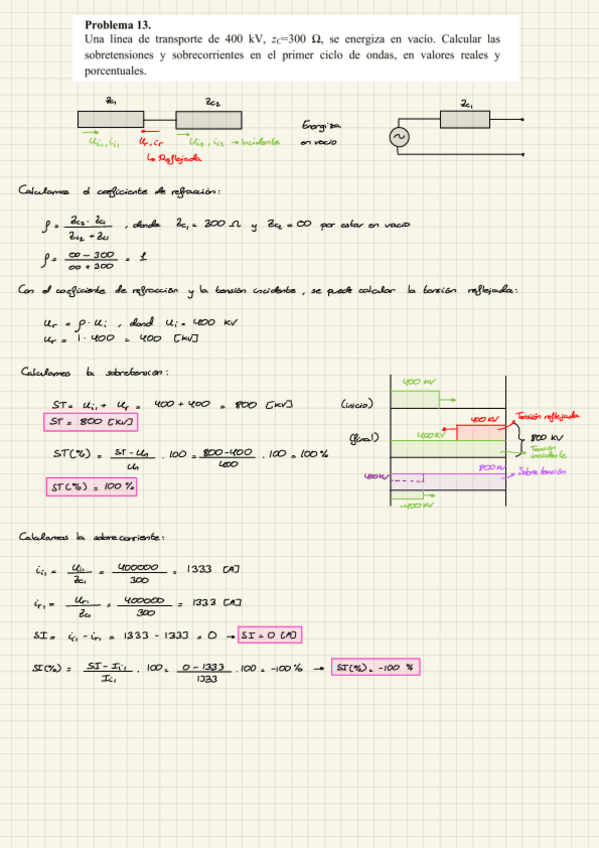 Problema 13.
Una línea de transporte de 400 kV, zC=300 Ω, se energiza en vacío. Calcular las
sobretensiones y sobrecorrientes en el primer ciclo de ondas, en valores reales y
porcentuales.
Zc1 Zc2 Zc1
Ui1, ii1 Ur, ir Ui2, ii2 → Incidente
↳ Reflejada
Energiza
en vacío
Calculamos el coeficiente de refracción:
ρ = (Zc2 - Zc1) / (Zc2 + Zc1) , donde Zc1 = 300 Ω y Zc2 = ∞ por estar en vacío
ρ = (∞ - 300) / (∞ + 300) = 1
Con el coeficiente de refracción y la tensión incidente, se puede calcular la tensión reflejada:
ur = ρ · ui , dond ui = 400 kV
ur = 1 · 400 = 400 [kV]
Calculamos la sobretensión:
ST = ui1 + ur = 400 + 400 = 800 [kV]
ST = 800 [kV]
ST(%) = (ST - un) / un · 100 = (800 - 400) / 400 · 100 = 100 %
ST(%) = 100 %
400 kV
(inicio)
400 kV Tensión reflejada
(final) 400 kV 800 kV
Tensión
incidente
800 kV Sobretensión
400 kV
-400 kV
Calculamos la sobrecorriente:
ii1 = ui1 / Zc1 = 400000 / 300 = 1333 [A]
ir1 = ur1 / Zc1 = 400000 / 300 = 1333 [A]
SI = ii1 - ir1 = 1333 - 1333 = 0 → SI = 0 [A]
SI(%) = (SI - Ii1) / Ii1 · 100 = (0 - 1333) / 1333 · 100 = -100 % → SI(%) = -100 %